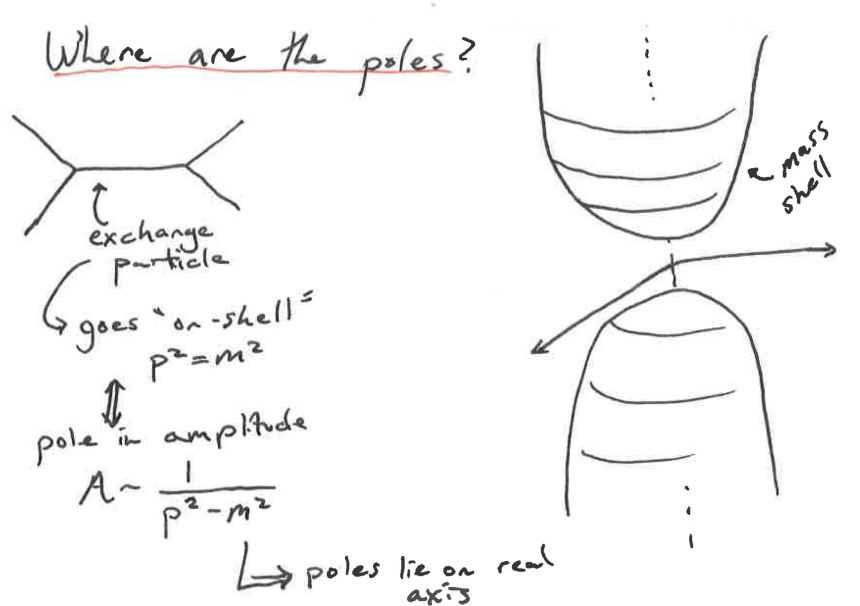 Where are the poles?
exchange
particle
goes "on-shell"
p² = m²
pole in amplitude
A ~ 1/(p² - m²)
poles lie on real
axis
mass
shell